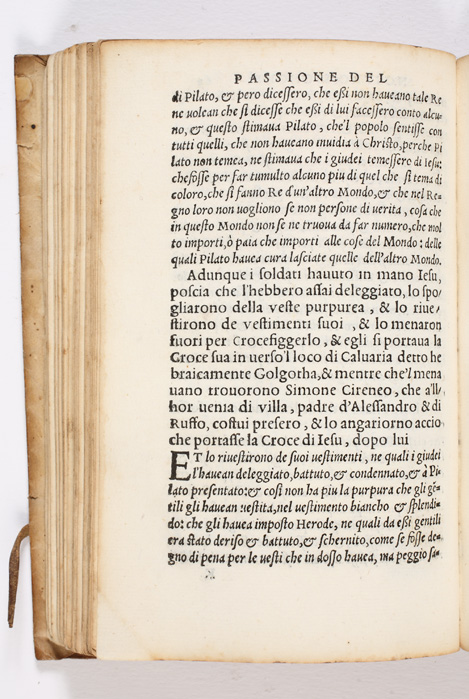 PASSIONE DEL
di Pilato, & pero dicessero, che essi non haueano tale Re
ne volean che si dicesse che essi di lui facessero conto alcu
no, & questo stimaua Pilato, che'l popolo sentisse con
tutti quelli, che non haueano inuidia à Christo, perche Pi
lato non temea, ne stimaua che i giudei temessero di Iesu:
che fosse per far tumulto alcuno piu di quel che si tema di
coloro, che si fanno Re d'un'altro Mondo, & che nel Re=
gno loro non uogliono se non persone di uerita, cosa che
in questo Mondo non se ne truoua da far numero, che mol
to importi, ò paia che importi alle cose del Mondo: delle
quali Pilato hauea cura lasciate quelle dell'altro Mondo.
Adunque i soldati hauuto in mano Iesu,
poscia che l'hebbero assai deleggiato, lo spo
gliarono della veste purpurea, & lo riue=
stirono de vestimenti suoi, & lo menaron
fuori per Crocefiggerlo, & egli si portaua la
Croce sua in uerso'l loco di Caluaria detto he
braicamente Golgotha, & mentre che'l mena
uano trouorono Simone Cireneo, che all'
hor uenia di villa, padre d'Alessandro & di
Ruffo, costui presero, & lo angariorno accio
che portasse la Croce di Iesu, dopo lui
ET lo riuestirono de suoi uestimenti, ne quali i giudei
l'hauean deleggiato, battuto, & condennato, & à Pi=
lato presentato: & così non ha piu la purpura che gli gē=
tili gli hauean uestita, nel uestimento biancho & splendi=
do: che gli hauea imposto Herode, ne quali da essi gentili
era stato deriso & battuto, & schernito, come se fosse de=
gno di pena per le uesti che in dosso hauea, ma peggio sa=